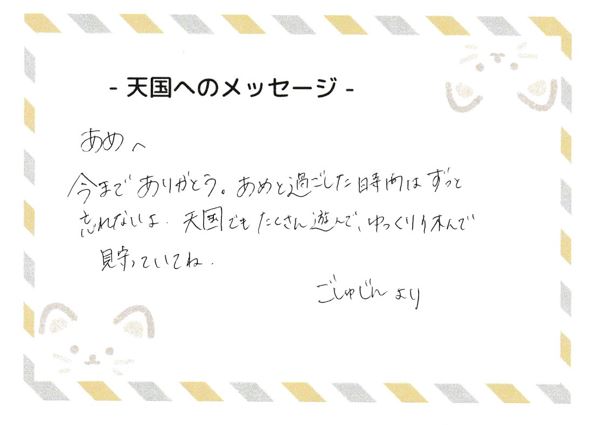 - 天国へのメッセージ -
あめへ
今までありがとう。あめと過ごした時間はずっと
忘れないよ. 天国でもたくさん遊んで、ゆっくり休んで
見守っていてね.
ごしゅじんより